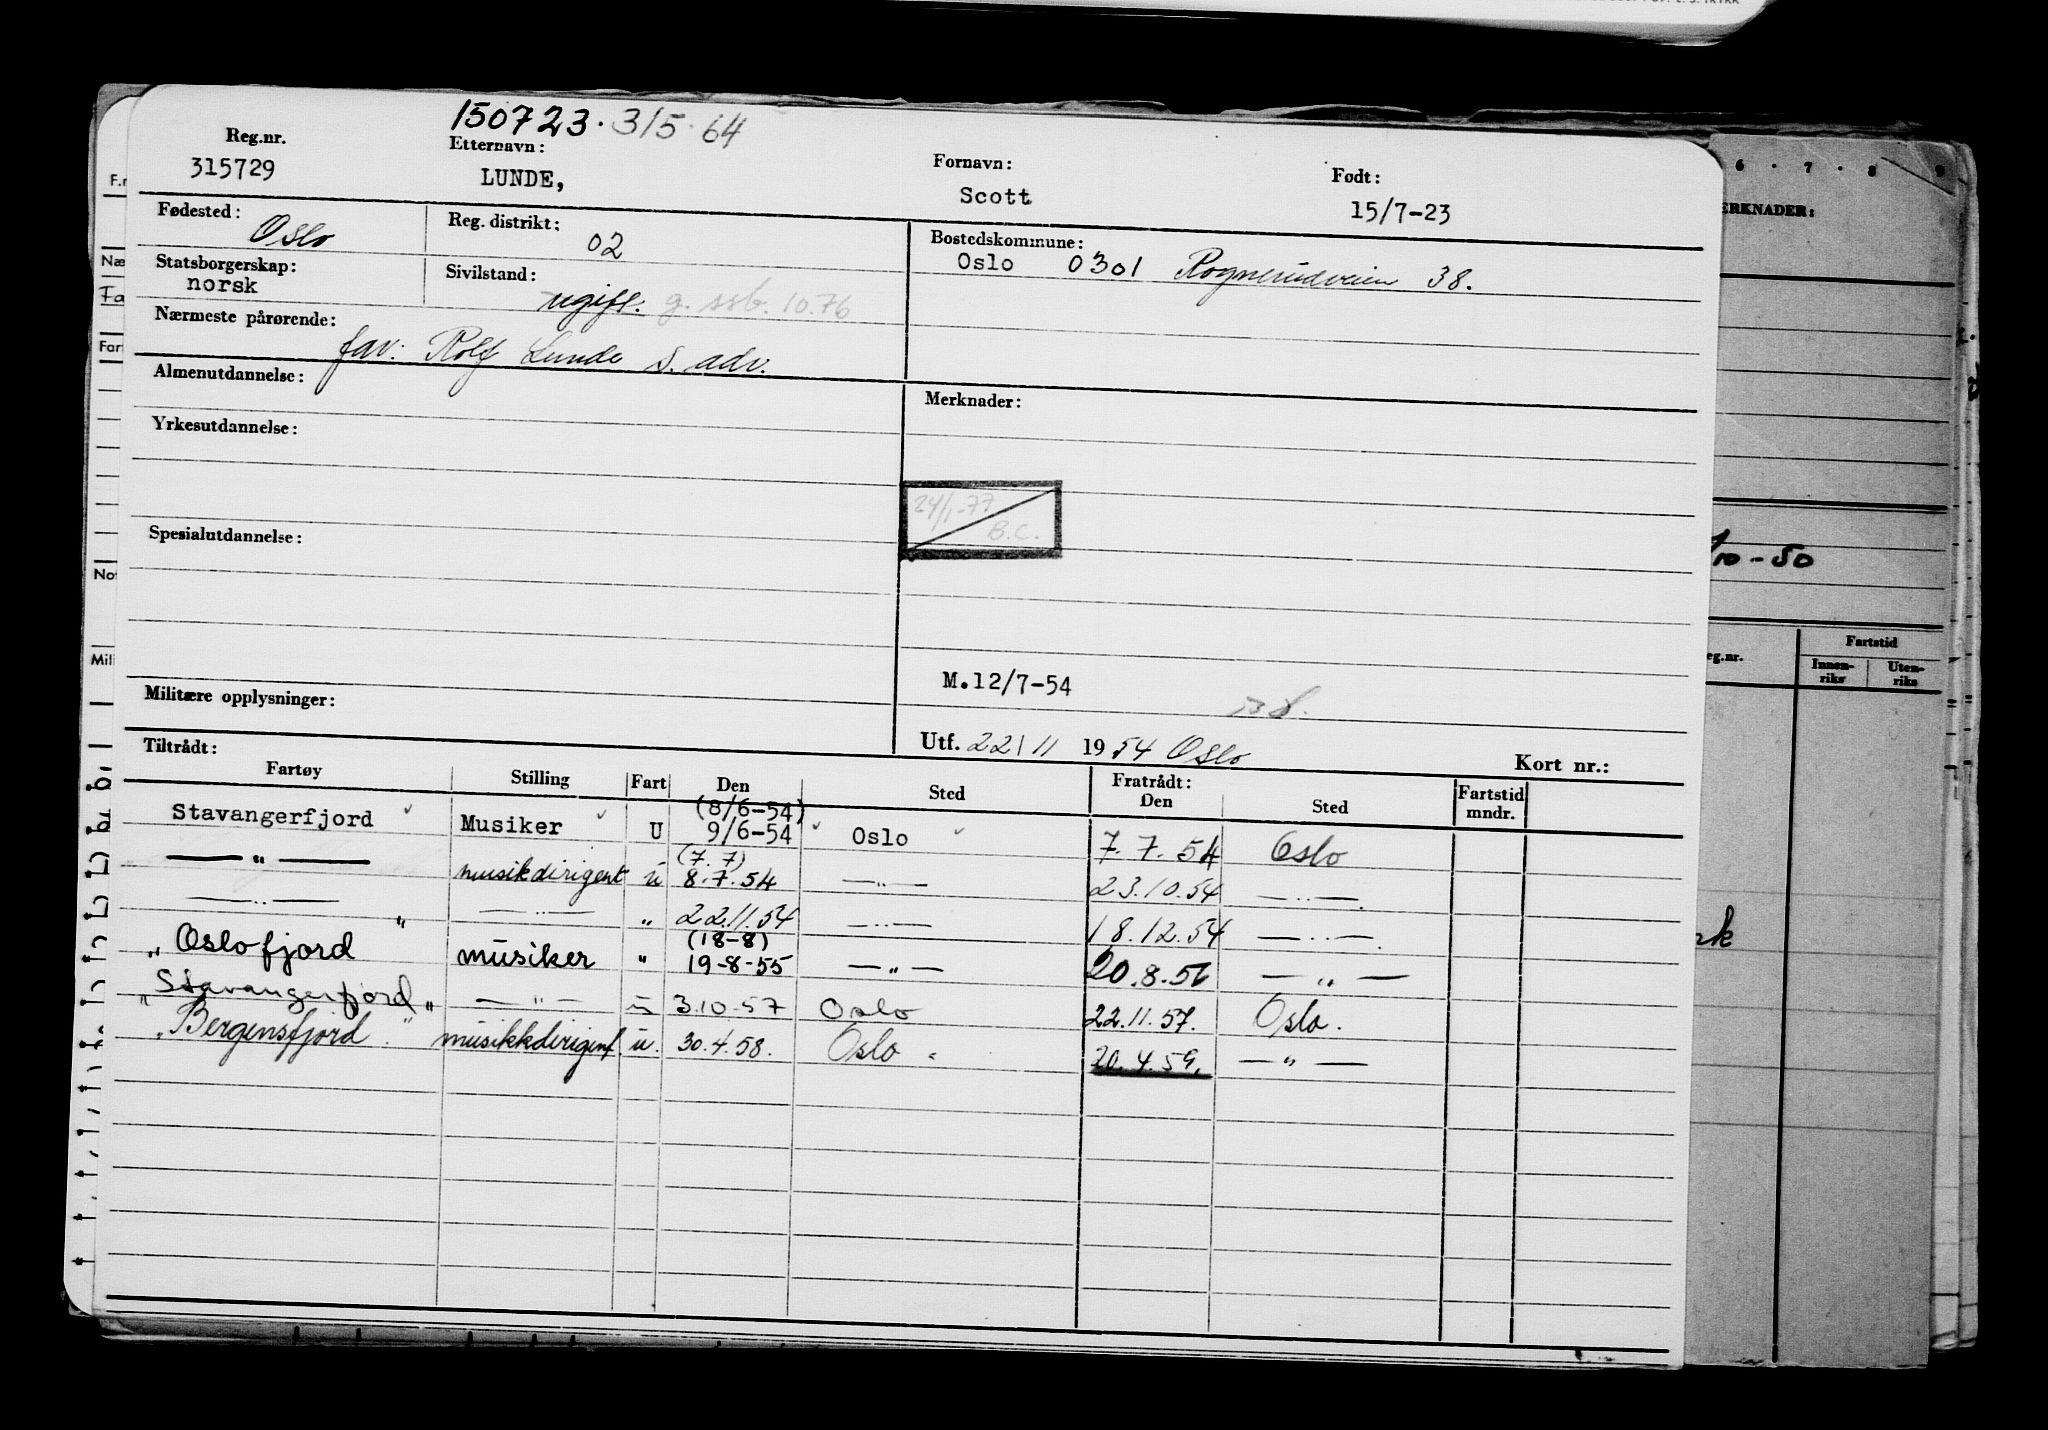 150723. 315.64
Reg.nr. Etternavn: Fornavn: Født:
315729 LUNDE, Scott 15/7-23
Fødested: Oslo Reg. distrikt: 02 Bostedskommune:
Oslo 0301 Rognerudveien 38.
Statsborgerskap: norsk Sivilstand: ugift. g. ssb. 10.76
Nærmeste pårørende: far: Rolf Lunde s. adv.
Almenutdannelse: Merknader:
Yrkesutdannelse:
24/1-77
B.C.
Spesialutdannelse:
M.12/7-54
Militære opplysninger:
Utf. 22/11 1954 Oslo Kort nr.:
Tiltrådt: Fratrådt:
Fartøy Stilling Fart Den Sted Den Sted Fartstid mndr.
Stavangerfjord Musiker U (8/6-54) 9/6-54 Oslo 7.7.54 Oslo
— " — musikdirigent u (7.7) 8.7.54 — " — 23.10.54 — " —
— " — " — " — " 22.11.54 — " — 18.12.54 — " —
"Oslofjord musiker " (18-8) 19-8-55 — " — 20.8.56 — " —
"Stavangerfjord" — " — u 3.10.57 Oslo 22.11.57. Oslo.
"Bergensfjord." musikkdirigent. u. 30.4.58. Oslo 20.4.59. — " —
6 . 7 . 8 9
ERKNADER:
/10-50
eg.nr. Fartstid
Innen-riks Uten-riks